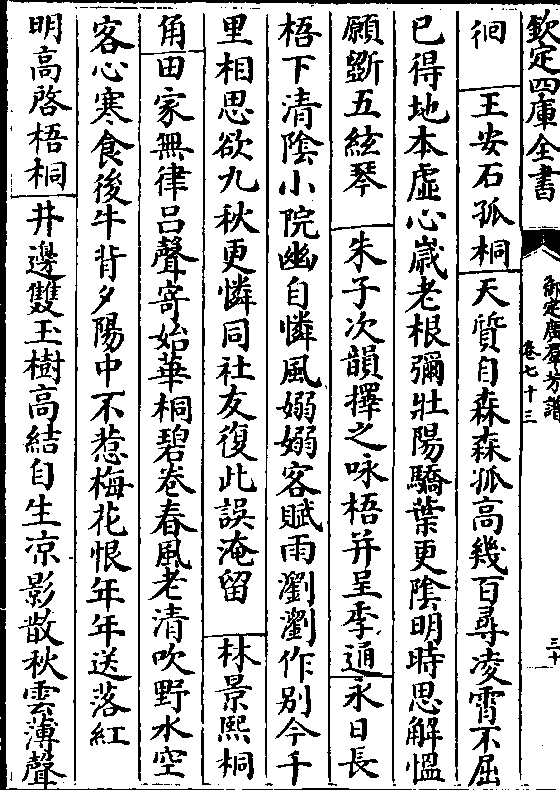 欽定四庫全書
御定廣羣芳譜
卷七十三
三十
徊 王安石孤桐 天質自森森孤高幾百尋凌霄不屈
已得地本虛心歲老根彌壯陽驕葉更陰明時思解愠
願斵五絃琴 朱子次韻擇之咏梧并呈季通 永日長
梧下清陰小院幽自憐風嫋嫋客賦雨瀏瀏作别今千
里相思欲九秋更憐同社友復此誤淹留 林景熙桐
角 田家無律吕聲寄始華桐碧卷春風老清吹野水空
客心寒食後牛背夕陽中不惹梅花恨年年送落紅
明高啓梧桐 井邊雙玉樹高結自生凉影散秋雲薄聲